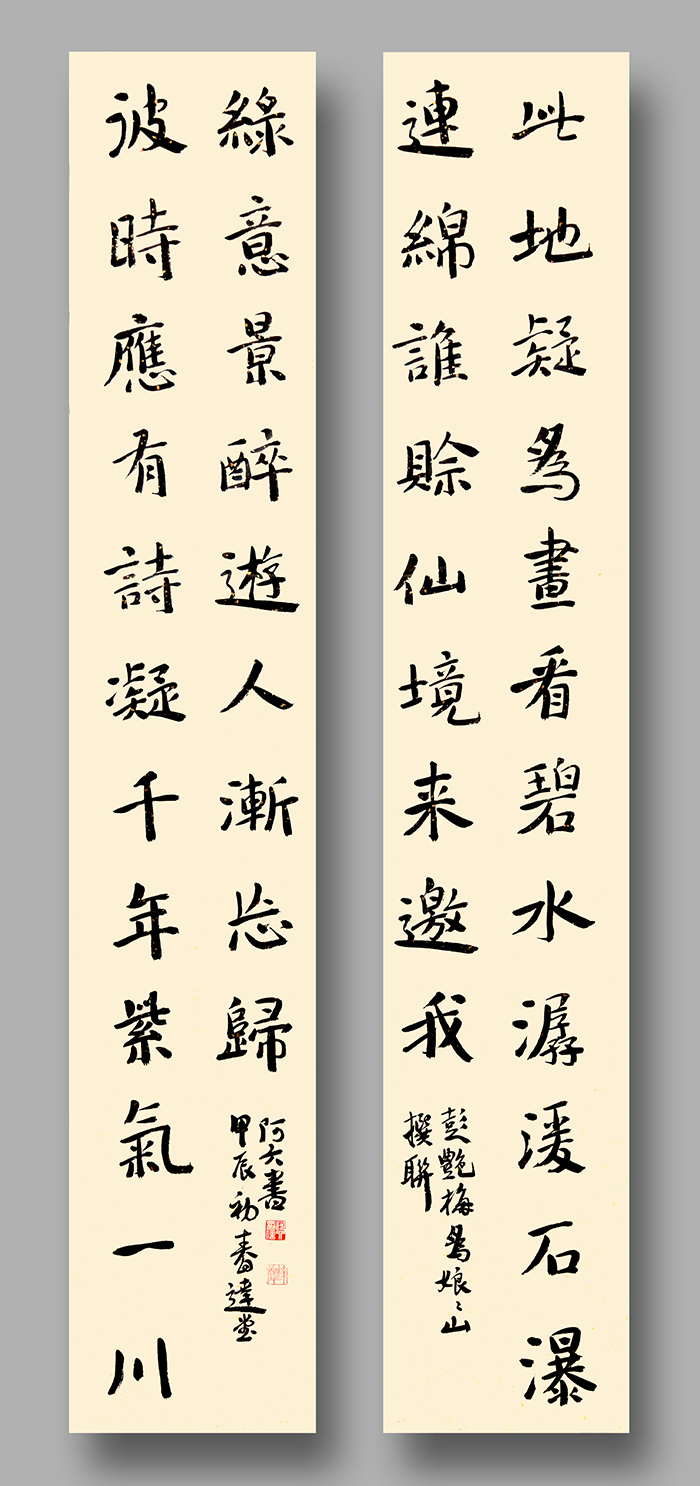 此地疑為畫看碧水潺湲石瀑
連綿誰賒仙境来邀我
彭艷梅為娘〻山
撰聯
彼時應有詩凝千年紫氣一川
綠意景醉遊人漸忘歸
甲辰初春達堂
阿大書